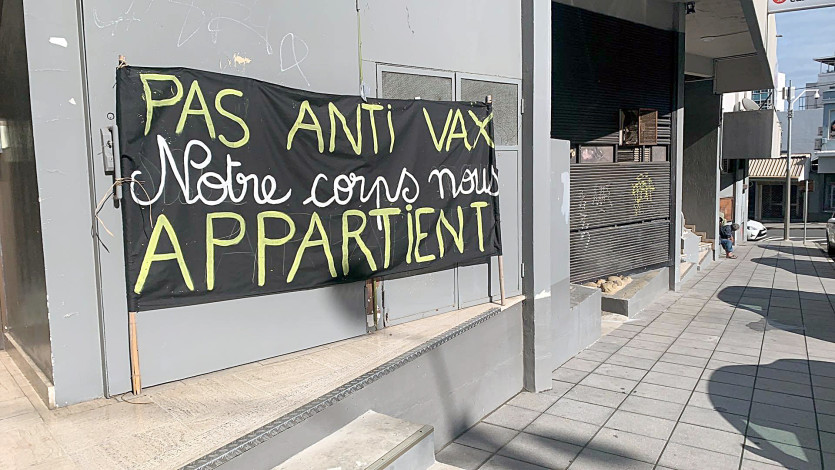 PAS ANTi VAX
Notre corps nous
APPARTiENT